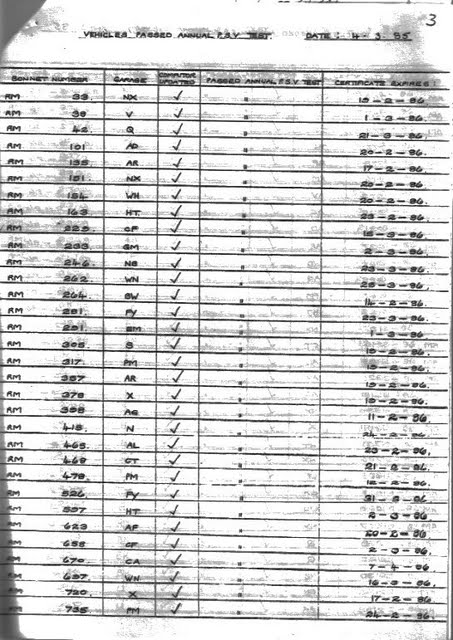 3
VEHICLES PASSED ANNUAL P.S.V TEST. DATE: 4-3-85
BONNET NUMBER GARAGE COMPUTER UPDATED PASSED ANNUAL P.S.V TEST CERTIFICATE EXPIRES:
RM 33. NX ✓ " 19-2-86.
RM 38 V ✓ " 1-3-86.
RM 42 Q ✓ " 21-3-86.
RM 101 AD ✓ " 20-2-86.
RM 135 AR ✓ " 17-2-86.
RM 151. NX ✓ " 20-2-86.
RM 154 WH ✓ " 20-2-86.
RM 163 HT. ✓ " 23-2-86.
RM 225 CF ✓ " 18-3-86.
RM 233 GM ✓ " 2-3-86.
RM 246 NB ✓ " 23-3-86.
RM 262 WN ✓ " 25-3-86.
RM 264. SW ✓ " 14-2-86.
RM 281. FY ✓ " 23-3-86.
RM 291 BM ✓ " 1-3-86.
RM 305 S ✓ " 19-2-86.
RM 317. PM ✓ " 19-2-86.
RM 357 AR ✓ " 19-2-86.
RM 378 X ✓ " 19-2-86.
RM 398 AG ✓ " 11-2-86.
RM 415. N ✓ " 24-2-86.
RM 465. AL ✓ " 23-2-86.
RM 468 CT ✓ " 21-2-86.
RM 478. PM ✓ " 12-2-86.
RM 526. FY ✓ " 31-3-86.
RM 597 HT ✓ " 2-3-86.
RM 623 AF ✓ " 20-2-86.
RM 658 CF ✓ " 2-3-86.
RM 670. CA ✓ " 7-4-86.
RM 697 WN ✓ " 16-3-86.
RM 720. X ✓ " 17-2-86.
RM 735 PM ✓ " 24-2-86.